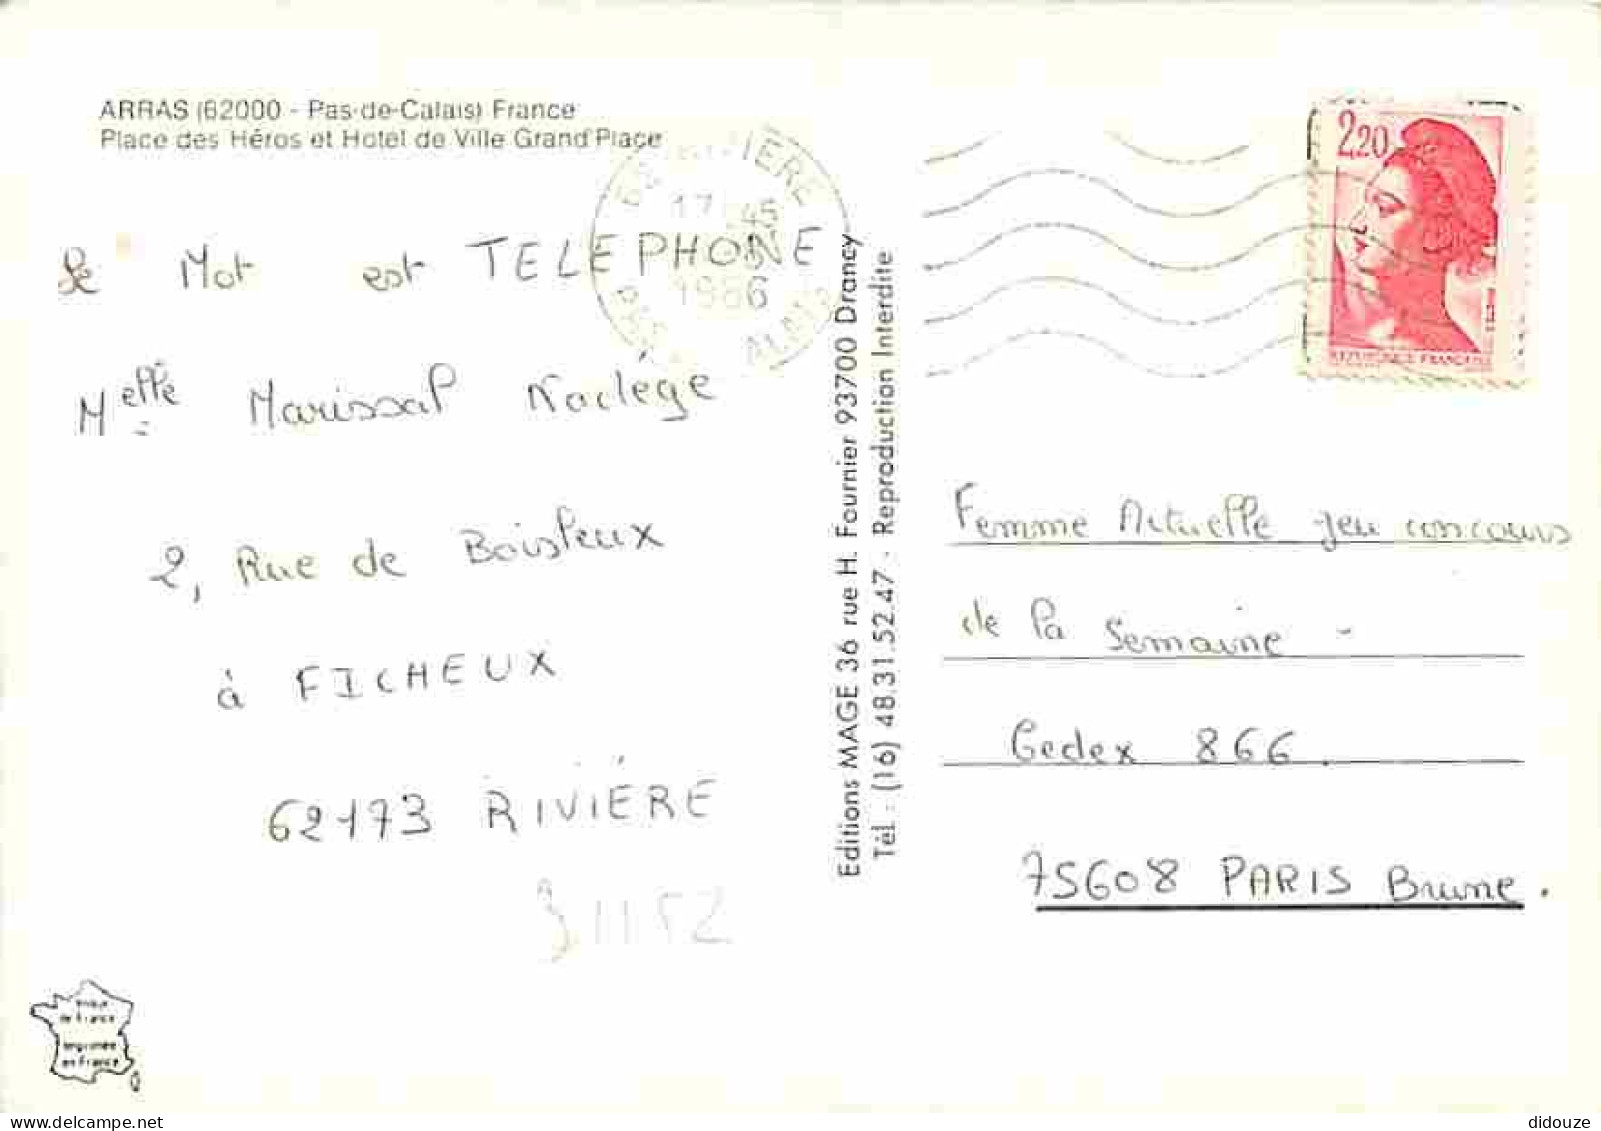 ARRAS (62000 - Pas-de-Calais) France
Place des Héros et Hotel de Ville Grand'Place
2,20
REPUBLIQUE FRANÇAISE
17
1986
Le Mot est TELEPHONE
Melle Marissal
2, Rue de Boisleux
à FICHEUX
62173 RIVIÉRE
31152
Editions MAGE 36 rue H. Fournier 93700 Drancy
Tél. : (16) 48.31.52.47 - Reproduction Interdite
Femme Actuelle jeu concours
de la Semaine -
Cedex 866.
75608 PARIS Brune.
de France
Imprimée
en France
didouze